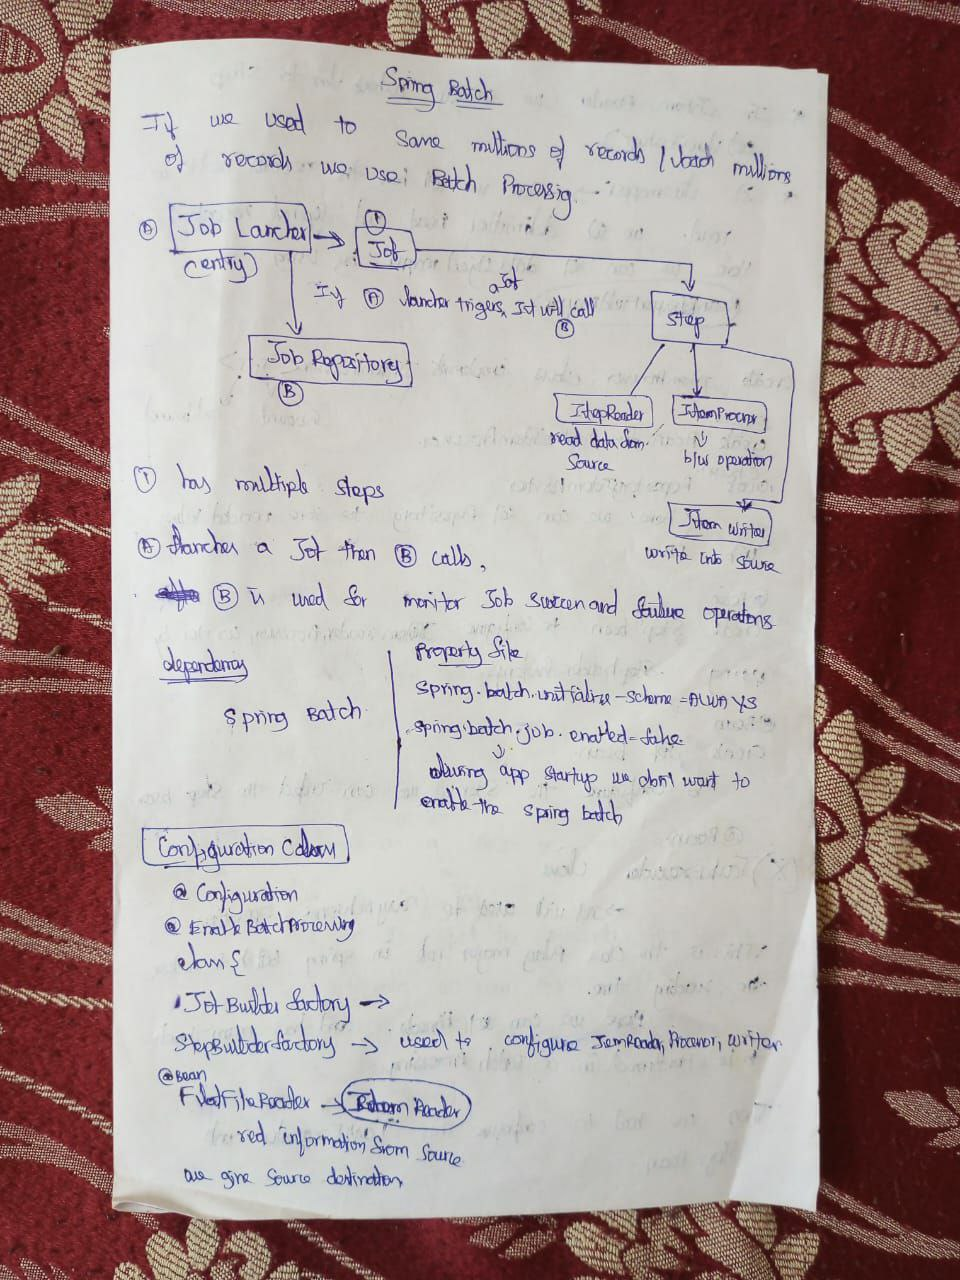 Spring Batch
If we used to same millions of records / batch millions
of records we use Batch Processig
A Job Lancher → 1 Job
(entry)
If A launcher trigers a Job, Job will call
B
Step
Job Repository
B
ItepReader
ItemProcesor
read data from
Source
b/us operation
Item Writer
write into source
1 has multiple steps
A launches a Job then B calls,
B is used for monitor Job success and failure operations
dependency
Spring Batch
Property file
spring.batch.initialize-scheme=ALWAYS
spring.batch.job.enabled=false
during app startup we don't want to
enable the spring batch
Configuration
@ Configuration
@ EnableBatchProcessing
class {
JobBuilderfactory →
StepBuilderfactory → used to configure ItemReader, Processor, writer
@Bean
FlatFileReader → Reader
red information from source
we give source destination